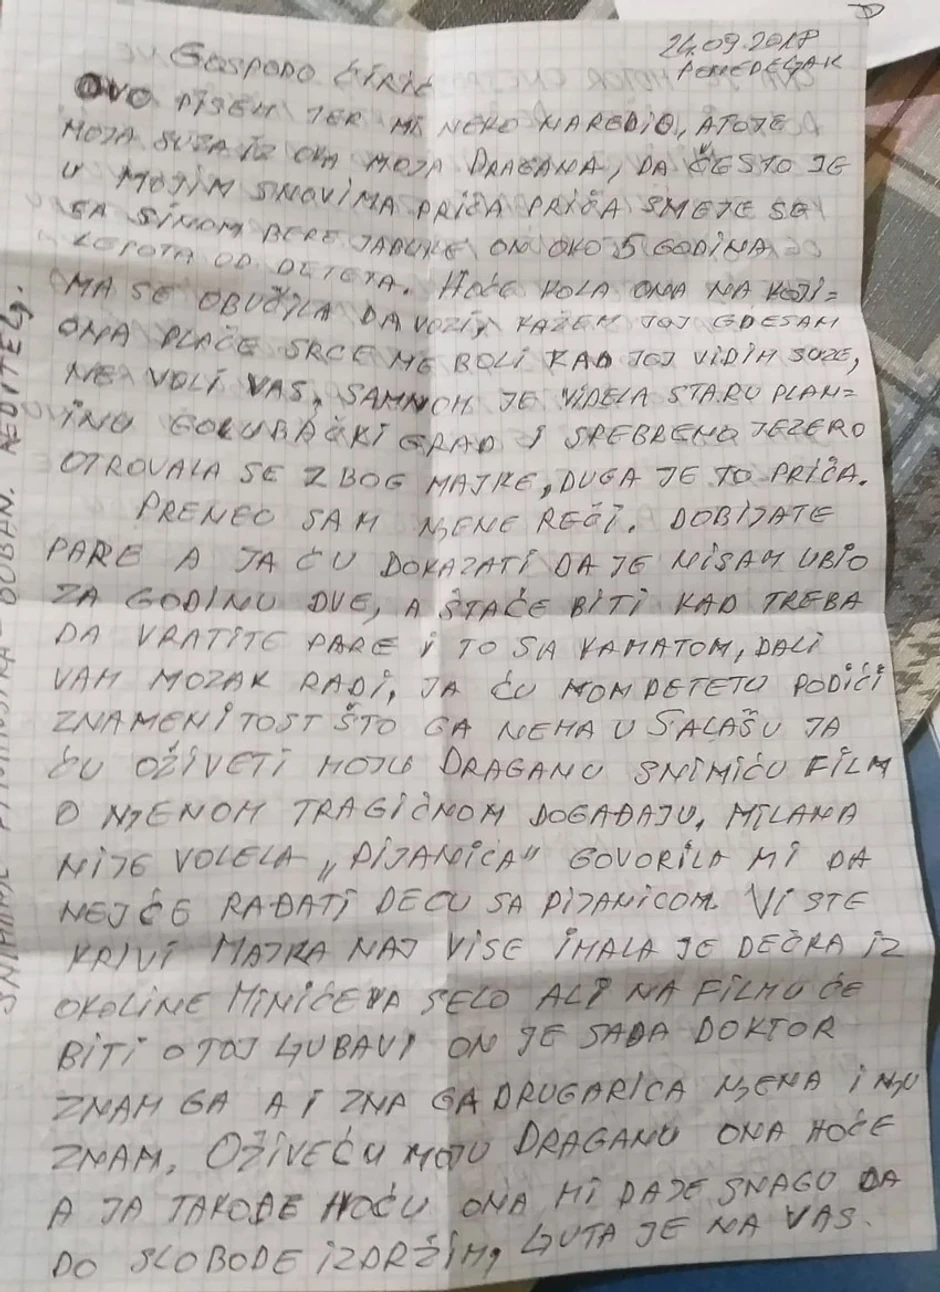 24.09.2018
PONEDELJAK
GOSPODO ĆIRIĆ
OVO PIŠEM JER MI NEKO NAREDIO, A TO JE
MOJA SUZA IZ OKA MOJA DRAGANA, DA ČESTO JE
U MOJIM SNOVIMA PRIČA PRIČA SMEJE SE
SA SINOM BERE JABUKE ON OKO 5 GODINA
LEPOTA OD DETETA. HOĆE KOLA ONA NA KOJI=
MA SE OBUČILA DA VOZI, KAŽEM JOJ GDE SAM
ONA PLAČE SRCE ME BOLI KAD JOJ VIDIM SUZE,
NE VOLI VAS, SAMNOM JE VIDELA STARU PLAN=
INU GOLUBAČKI GRAD I SREBRENO JEZERO
OTROVALA SE ZBOG MAJKE, DUGA JE TO PRIČA.
PRENEO SAM NJENE REČI. DOBIJATE
PARE A JA ĆU DOKAZATI DA JE NISAM UBIO
ZA GODINU DVE, A ŠTA ĆE BITI KAD TREBA
DA VRATITE PARE I TO SA KAMATOM, DALI
VAM MOZAK RADI, JA ĆU MOM DETETU PODIĆI
ZNAMENITOST ŠTO GA NEMA U SALAŠU JA
ĆU OŽIVETI MOJU DRAGANU SNIMIĆU FILM
O NJENOM TRAGIČNOM DOGAĐAJU, MILANA
NIJE VOLELA „PIJANICA" GOVORILA MI DA
NEJĆE RAĐATI DECU SA PIJANICOM. VI STE
KRIVI MAJKA NAJ VIŠE IMALA JE DEČKA IZ
OKOLINE MINIĆEVA SELO ALI NA FILMU ĆE
BITI O TOJ LJUBAVI ON JE SADA DOKTOR
ZNAM GA A I ZNA GA DRUGARICA NJENA I NJU
ZNAM, OŽIVEĆU MOJU DRAGANU ONA HOĆE
A JA TAKOĐE HOĆU ONA MI DAJE SNAGU DA
DO SLOBODE IZDRŽIM, LJUTA JE NA VAS.
SNIMANJE DUBAN. REDITELJ.